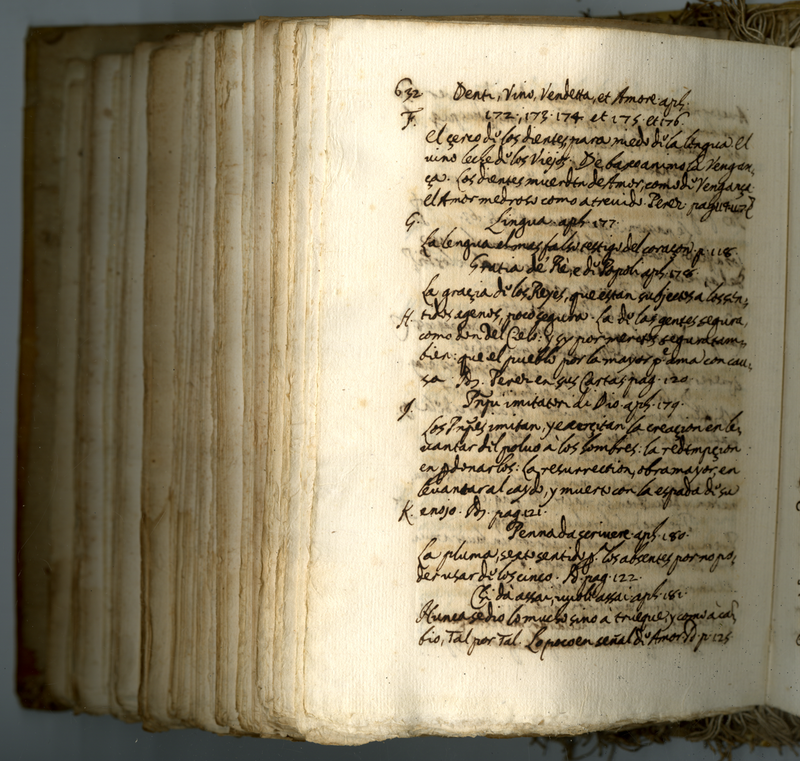 632 Denti, Vino, Vendetta, et Amore. aph.
F. 172. 173. 174. et 175. et 176.
El çerco de los dientes para miedo de la lengua. El
vino leche de los Viejos. De baxo animo la Vengan-
ça. Los dientes muerden de Amor, como de Vengança.
el Amor medroso como atrevido. Perez. pag.
G. Lingua. aph. 177.
La lengua el mas falso testigo del coraçon. p. 118.
Gratia de Rè, e di Popoli. aph. 178.
La graçia de los Reyes, que estan subjectos a los sen-
H. tidos agenos, poco segura. La de las gentes segura,
como don del Cielo: y sy por meritos segura tam-
bien: que el pueblo por la mayor pte ama con cau-
sa. Perez en sus Cartas pag. 120.
J. imitatori di Dio. aph. 179.
Los imitan, y exerçitan la creaçion en le-
vantar del polvo à los hombres: la redempçion
en pdonarlos: La resurrection, obra mayor, en
levantar al caydo, y muerto con la espada de su
K. enojo. pag. 121.
Penna da scrivere. aph. 180.
La pluma, sexto sentido pa. los absentes por no po-
der usar de los cinco. pag. 122.
Chi dà assai, vuole assai. aph. 181.
Nunca se dio lo mucho sino à trueque; y como à cam-
bio, Tal por Tal. Lo poco en señal de Amor. p. 125